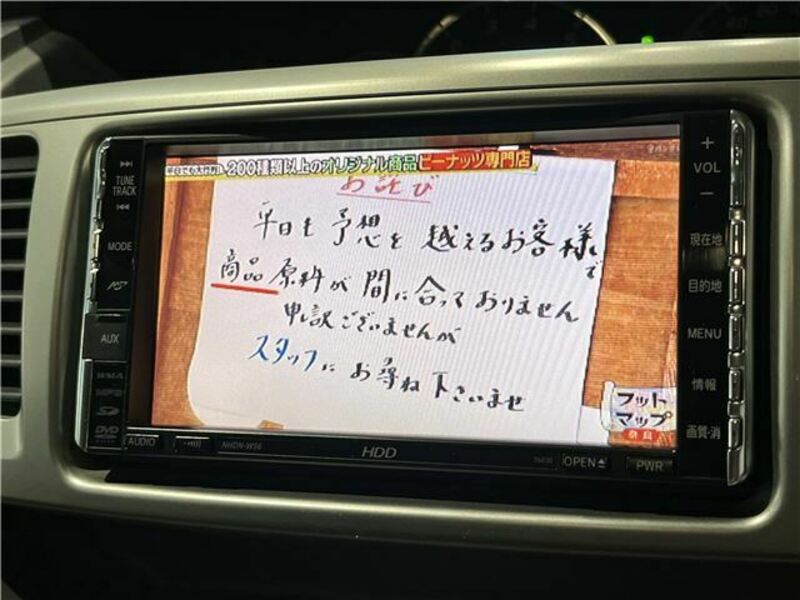 平日でも大行列!
200種類以上のオリジナル商品ピーナッツ専門店
お詫び
平日も予想を越えるお客様で
商品原料が間に合っておりません
申し訳ございませんが
スタッフにお尋ね下さいませ
フット
マップ
奈良
TUNE
TRACK
MODE
AUX
WMA
MP3
DVD
AUDIO
NHDN-W56
HDD
OPEN
PWR
+
VOL
−
現在地
目的地
MENU
情報
画質・消